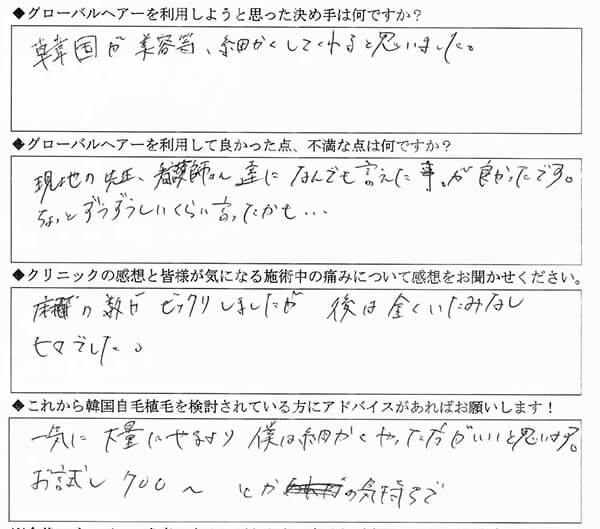 ◆グローバルヘアーを利用しようと思った決め手は何ですか?
韓国が美容等、細かくしてくれると思いました。
◆グローバルヘアーを利用して良かった点、不満な点は何ですか?
現地の先生、看護師さん達になんでも言えた事。が良かったです。
ちょっとずうずうしいくらい言ったかも...
◆クリニックの感想と皆様が気になる施術中の痛みについて感想をお聞かせください。
麻酔の数がビックリしましたが 後は全くいたみなし
でした。
◆これから韓国自毛植毛を検討されている方にアドバイスがあればお願いします!
一気に大量にやるより 僕は細かくやった方がいいと思います。
お試し 700 〜 とか の気持ちで